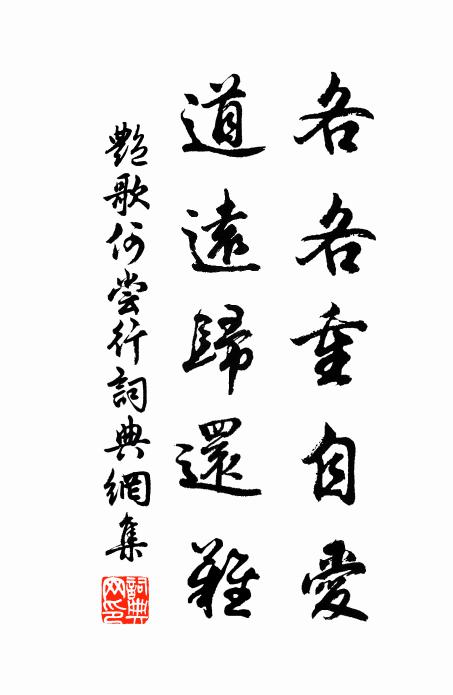 各各重自愛
道遠歸還難
豔歌何嘗行詞典網集
詞典網印